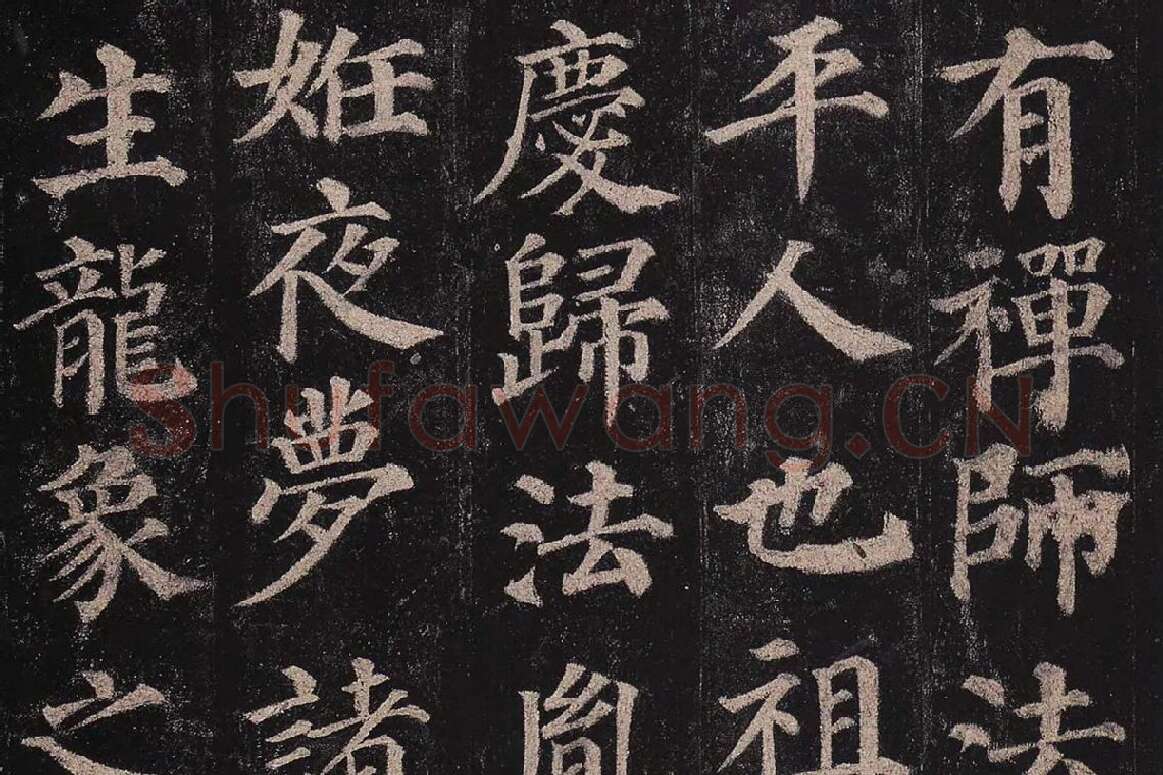 有禪師法
平人也祖
慶歸法胤
姙夜夢諸
生龍象之
Shufawang.CN